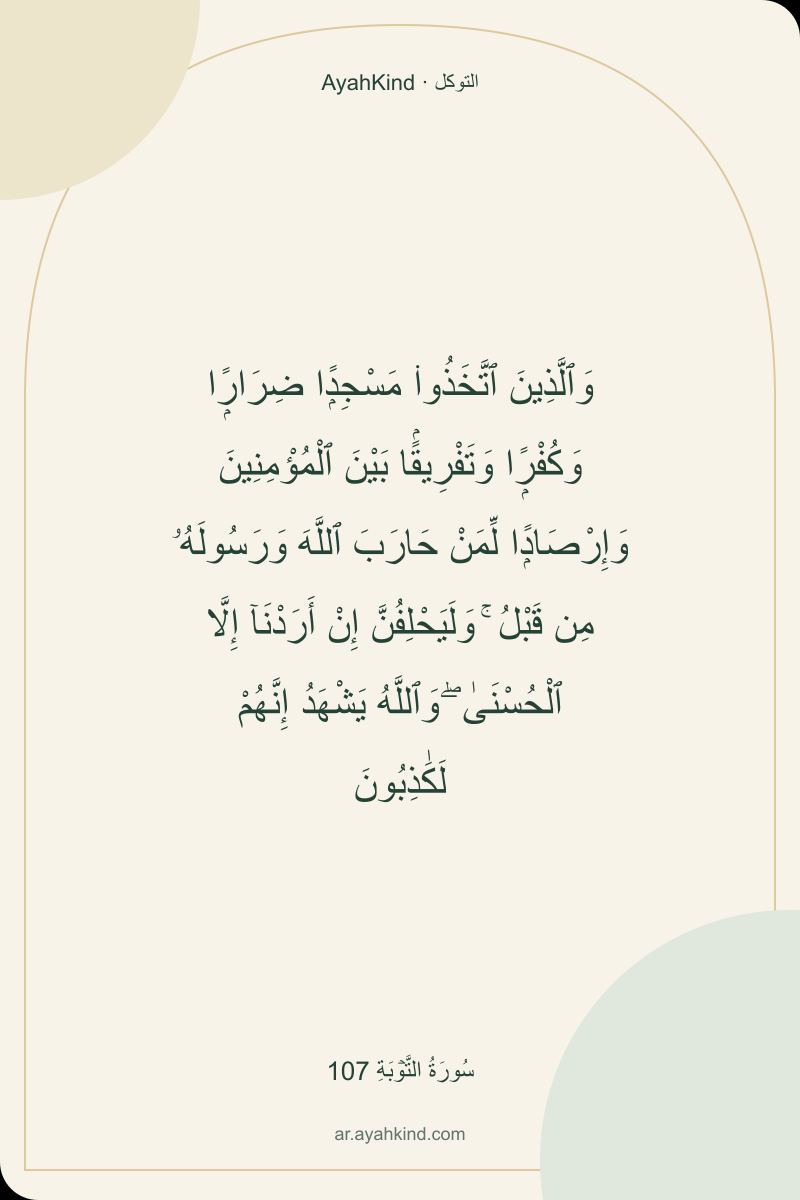 التوكل · AyahKind
وَٱلَّذِينَ ٱتَّخَذُوا۟ مَسْجِدًۭا ضِرَارًۭا
وَكُفْرًۭا وَتَفْرِيقًۢا بَيْنَ ٱلْمُؤْمِنِينَ
وَإِرْصَادًۭا لِّمَنْ حَارَبَ ٱللَّهَ وَرَسُولَهُۥ
مِن قَبْلُ ۚ وَلَيَحْلِفُنَّ إِنْ أَرَدْنَآ إِلَّا
ٱلْحُسْنَىٰ ۖ وَٱللَّهُ يَشْهَدُ إِنَّهُمْ
لَكَـٰذِبُونَ
سُورَةُ التَّوۡبَةِ 107
ar.ayahkind.com